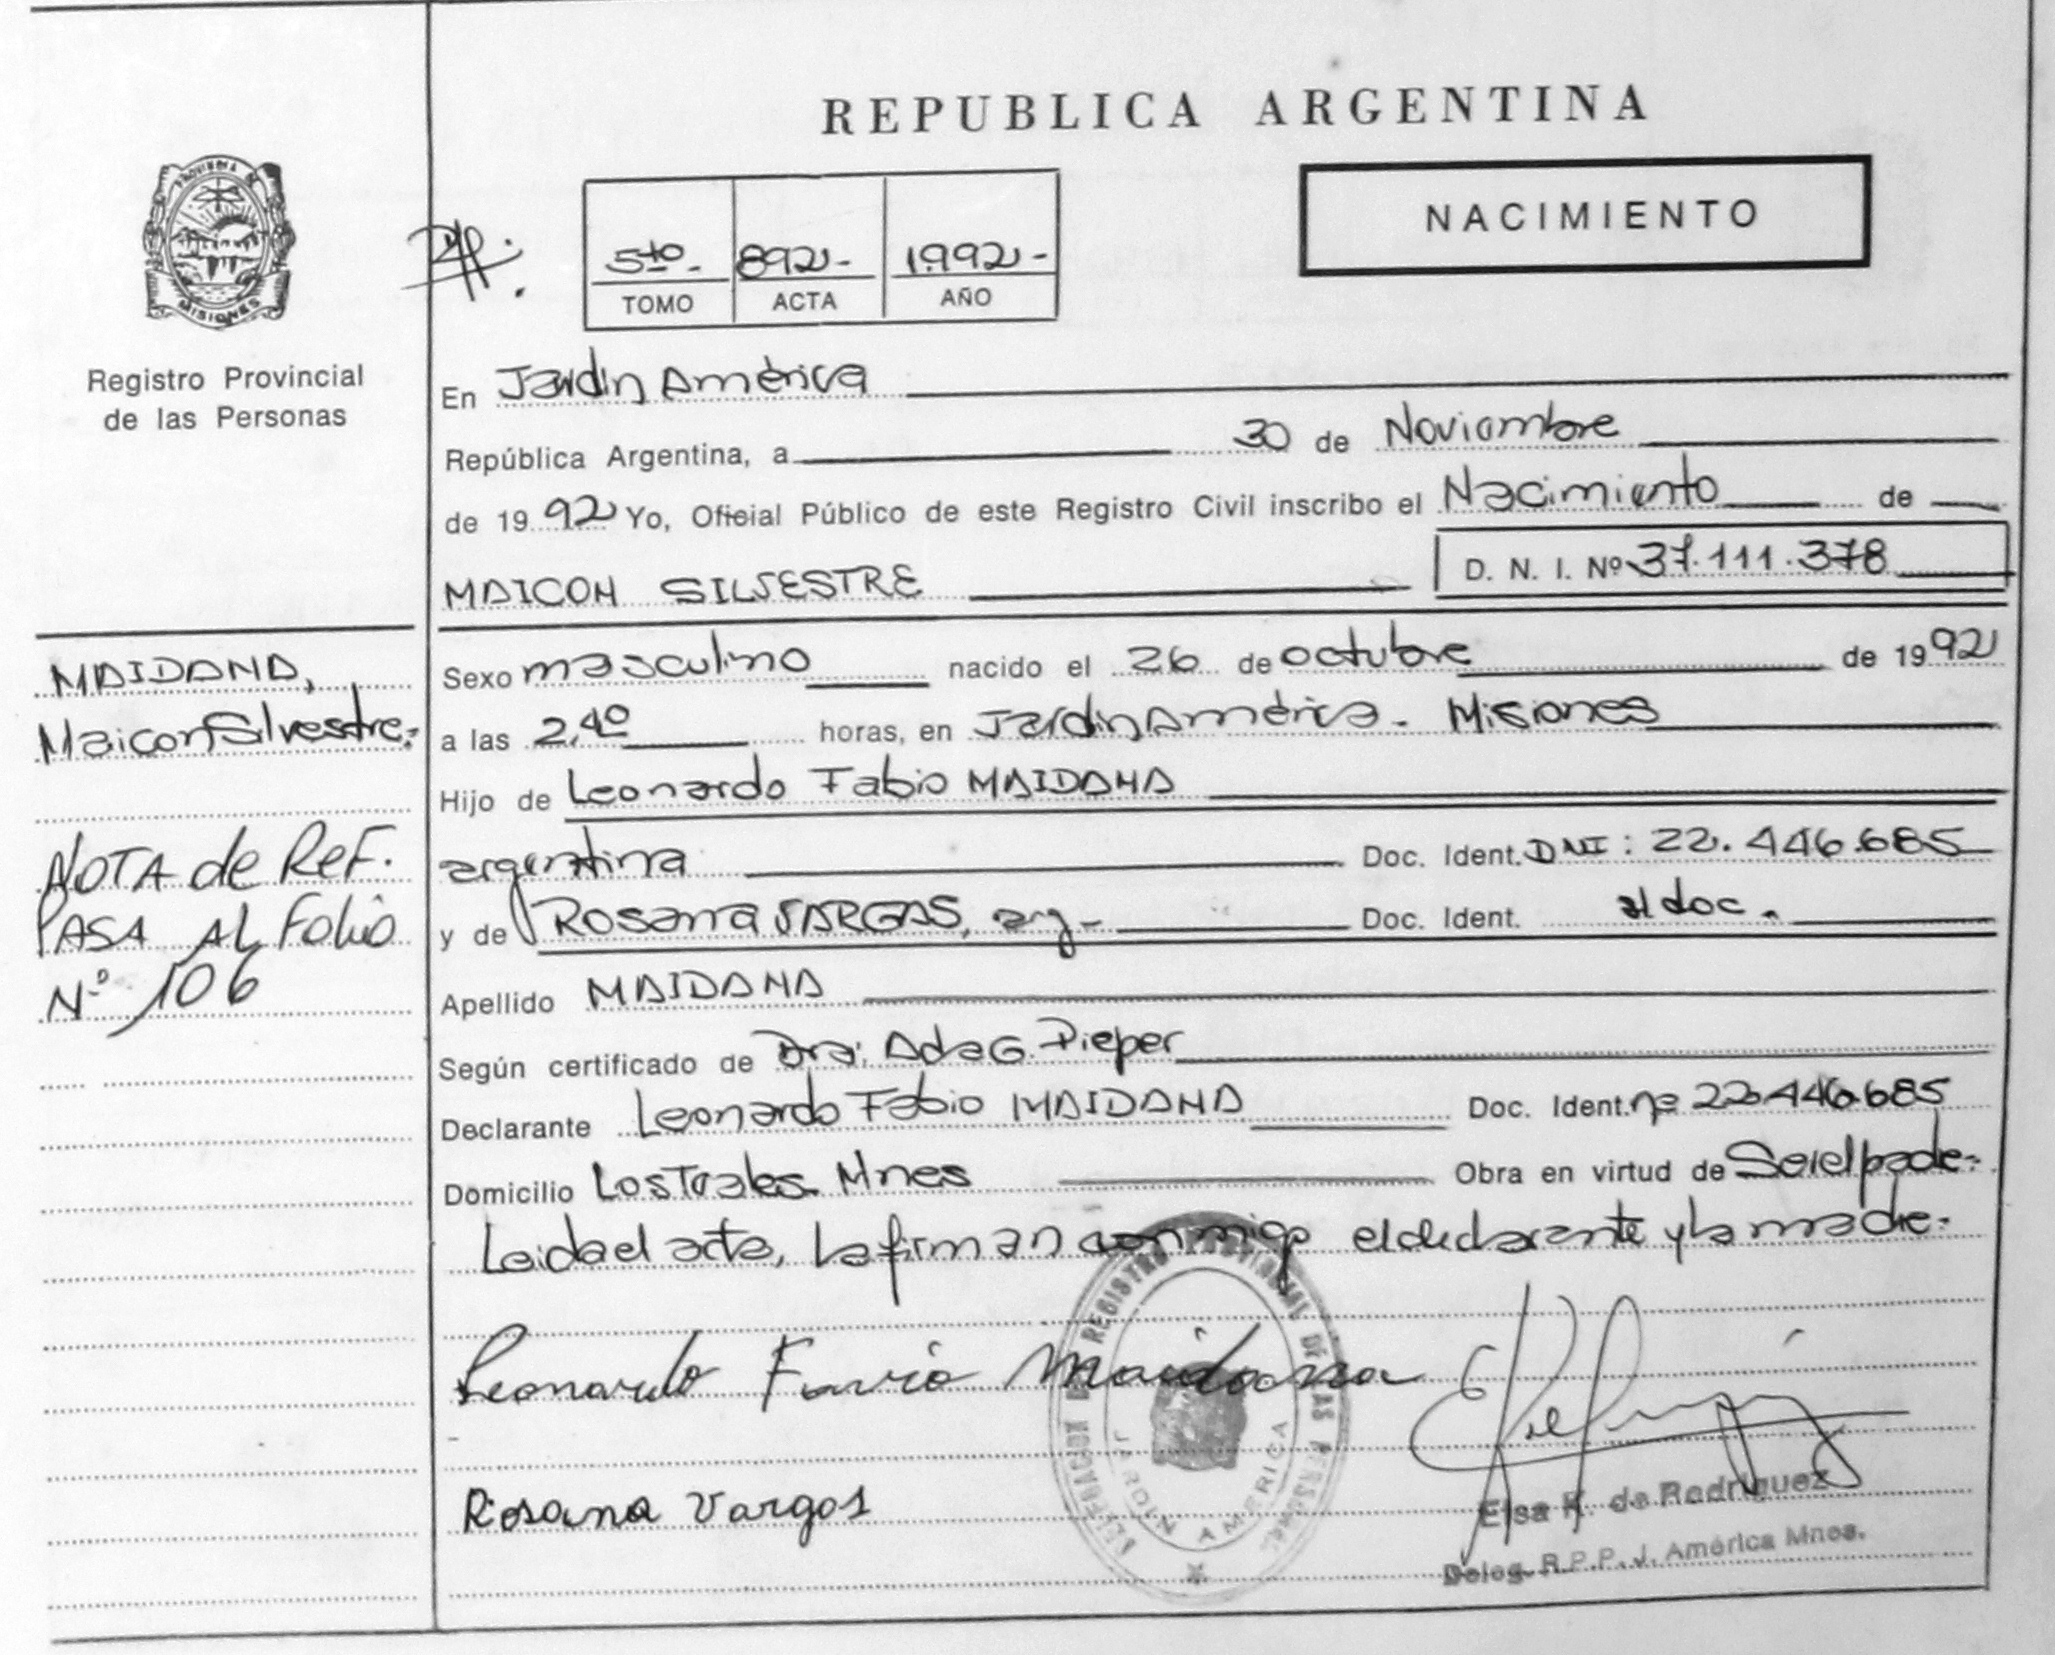 REPUBLICA ARGENTINA
NACIMIENTO
PROVINCIA DE
MISIONES
Registro Provincial
de las Personas
5to.- 892- 1992-
TOMO ACTA AÑO
En Jardin América
República Argentina, a 30 de Noviembre
de 1992 Yo, Oficial Público de este Registro Civil inscribo el Nacimiento de
MAICON SILVESTRE D. N. I. Nº 37.111.378
MAIDANA,
Maicon Silvestre.-
NOTA de ReF.
PASA AL Folio
Nº 106
Sexo masculino nacido el 26 de octubre de 1992
a las 2,40 horas, en Jardin América - Misiones
Hijo de Leonardo Fabio MAIDANA
argentina Doc. Ident. DNI: 22.446.685
y de Rosana VARGAS, arg- Doc. Ident. doc.
Apellido MAIDANA
Según certificado de Dra: Ada G. Pieper
Declarante Leonardo Fabio MAIDANA Doc. Ident. nº 22.446.685
Domicilio Los Teales Mnes Obra en virtud de Ser el padre-
Leida el acta, la firman conmigo el declarante y la madre-
Leonardo Favio Maidana
Rosana Vargas
REGISTRO PROVINCIAL DE LAS PERSONAS
JARDIN AMERICA
Elsa K. de Rodriguez
Deleg. R.P.P. J. América Mnes.